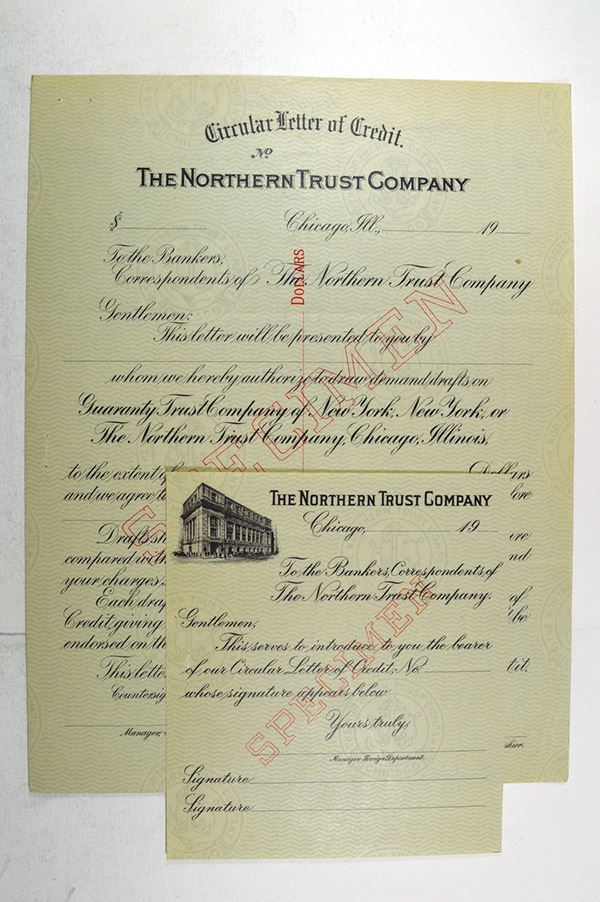 Circular Letter of Credit.
No
THE NORTHERN TRUST COMPANY
$ Chicago, Ill., 19
To the Bankers,
Correspondents of The Northern Trust Company
DOLLARS
Gentlemen:
This letter will be presented to you by
whom we hereby authorize to draw demand drafts on
Guaranty Trust Company of New York, New York, or
The Northern Trust Company, Chicago, Illinois,
to the extent of Dollars
and we agree
Drafts
compared with
your charges
Each
Credit, giving
endorsed on the
This letter
Manager,
SPECIMEN
THE NORTHERN TRUST COMPANY
Chicago, 19
To the Bankers, Correspondents of
The Northern Trust Company.
Gentlemen,
This serves to introduce to you the bearer
of our Circular Letter of Credit, No.
whose signature appears below
Yours truly,
Manager Foreign Department.
Signature
Signature
SPECIMEN